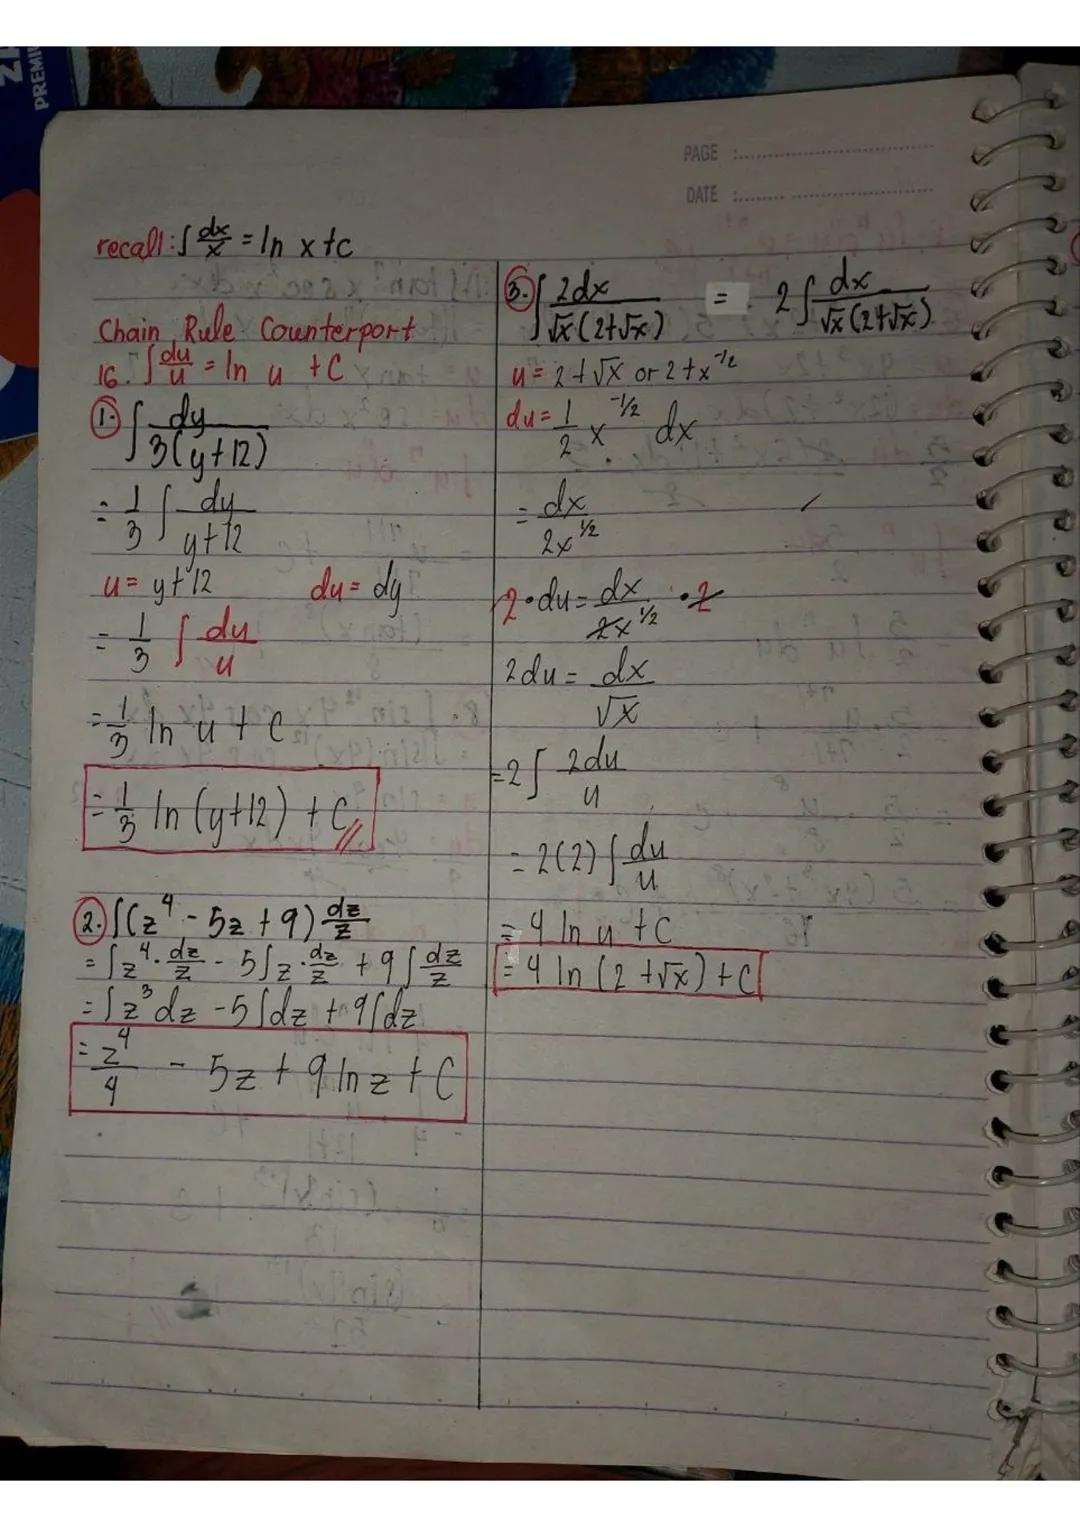 PREMIU
PAGE :
DATE :
recall: ∫ dx/x = ln x + c
Chain Rule Counterport
16. ∫ du/u = ln u + C
1. ∫ dy/3(y+12)
= 1/3 ∫ dy/y+12
u = y+12 du = dy
= 1/3 ∫ du/u
= 1/3 ln u + C
= 1/3 ln (y+12) + C //
2. ∫(z⁴ - 5z + 9) dz/z
= ∫z⁴ · dz/z - 5∫z · dz/z + 9∫dz/z
= ∫z³dz - 5∫dz + 9∫dz
= z⁴/4 - 5z + 9 ln z + C
3. ∫ 2dx/√x(2+√x) = 2∫ dx/√x(2+√x)
u = 2+√x or 2+x^-1/2
du = 1/2 x^-1/2 dx
= dx/2x^1/2
2·du = dx/2x^1/2 ·2
2du = dx/√x
= 2∫ 2du/u
= 2(2)∫ du/u
= 4 ln u + C
= 4 ln (2+√x) + C